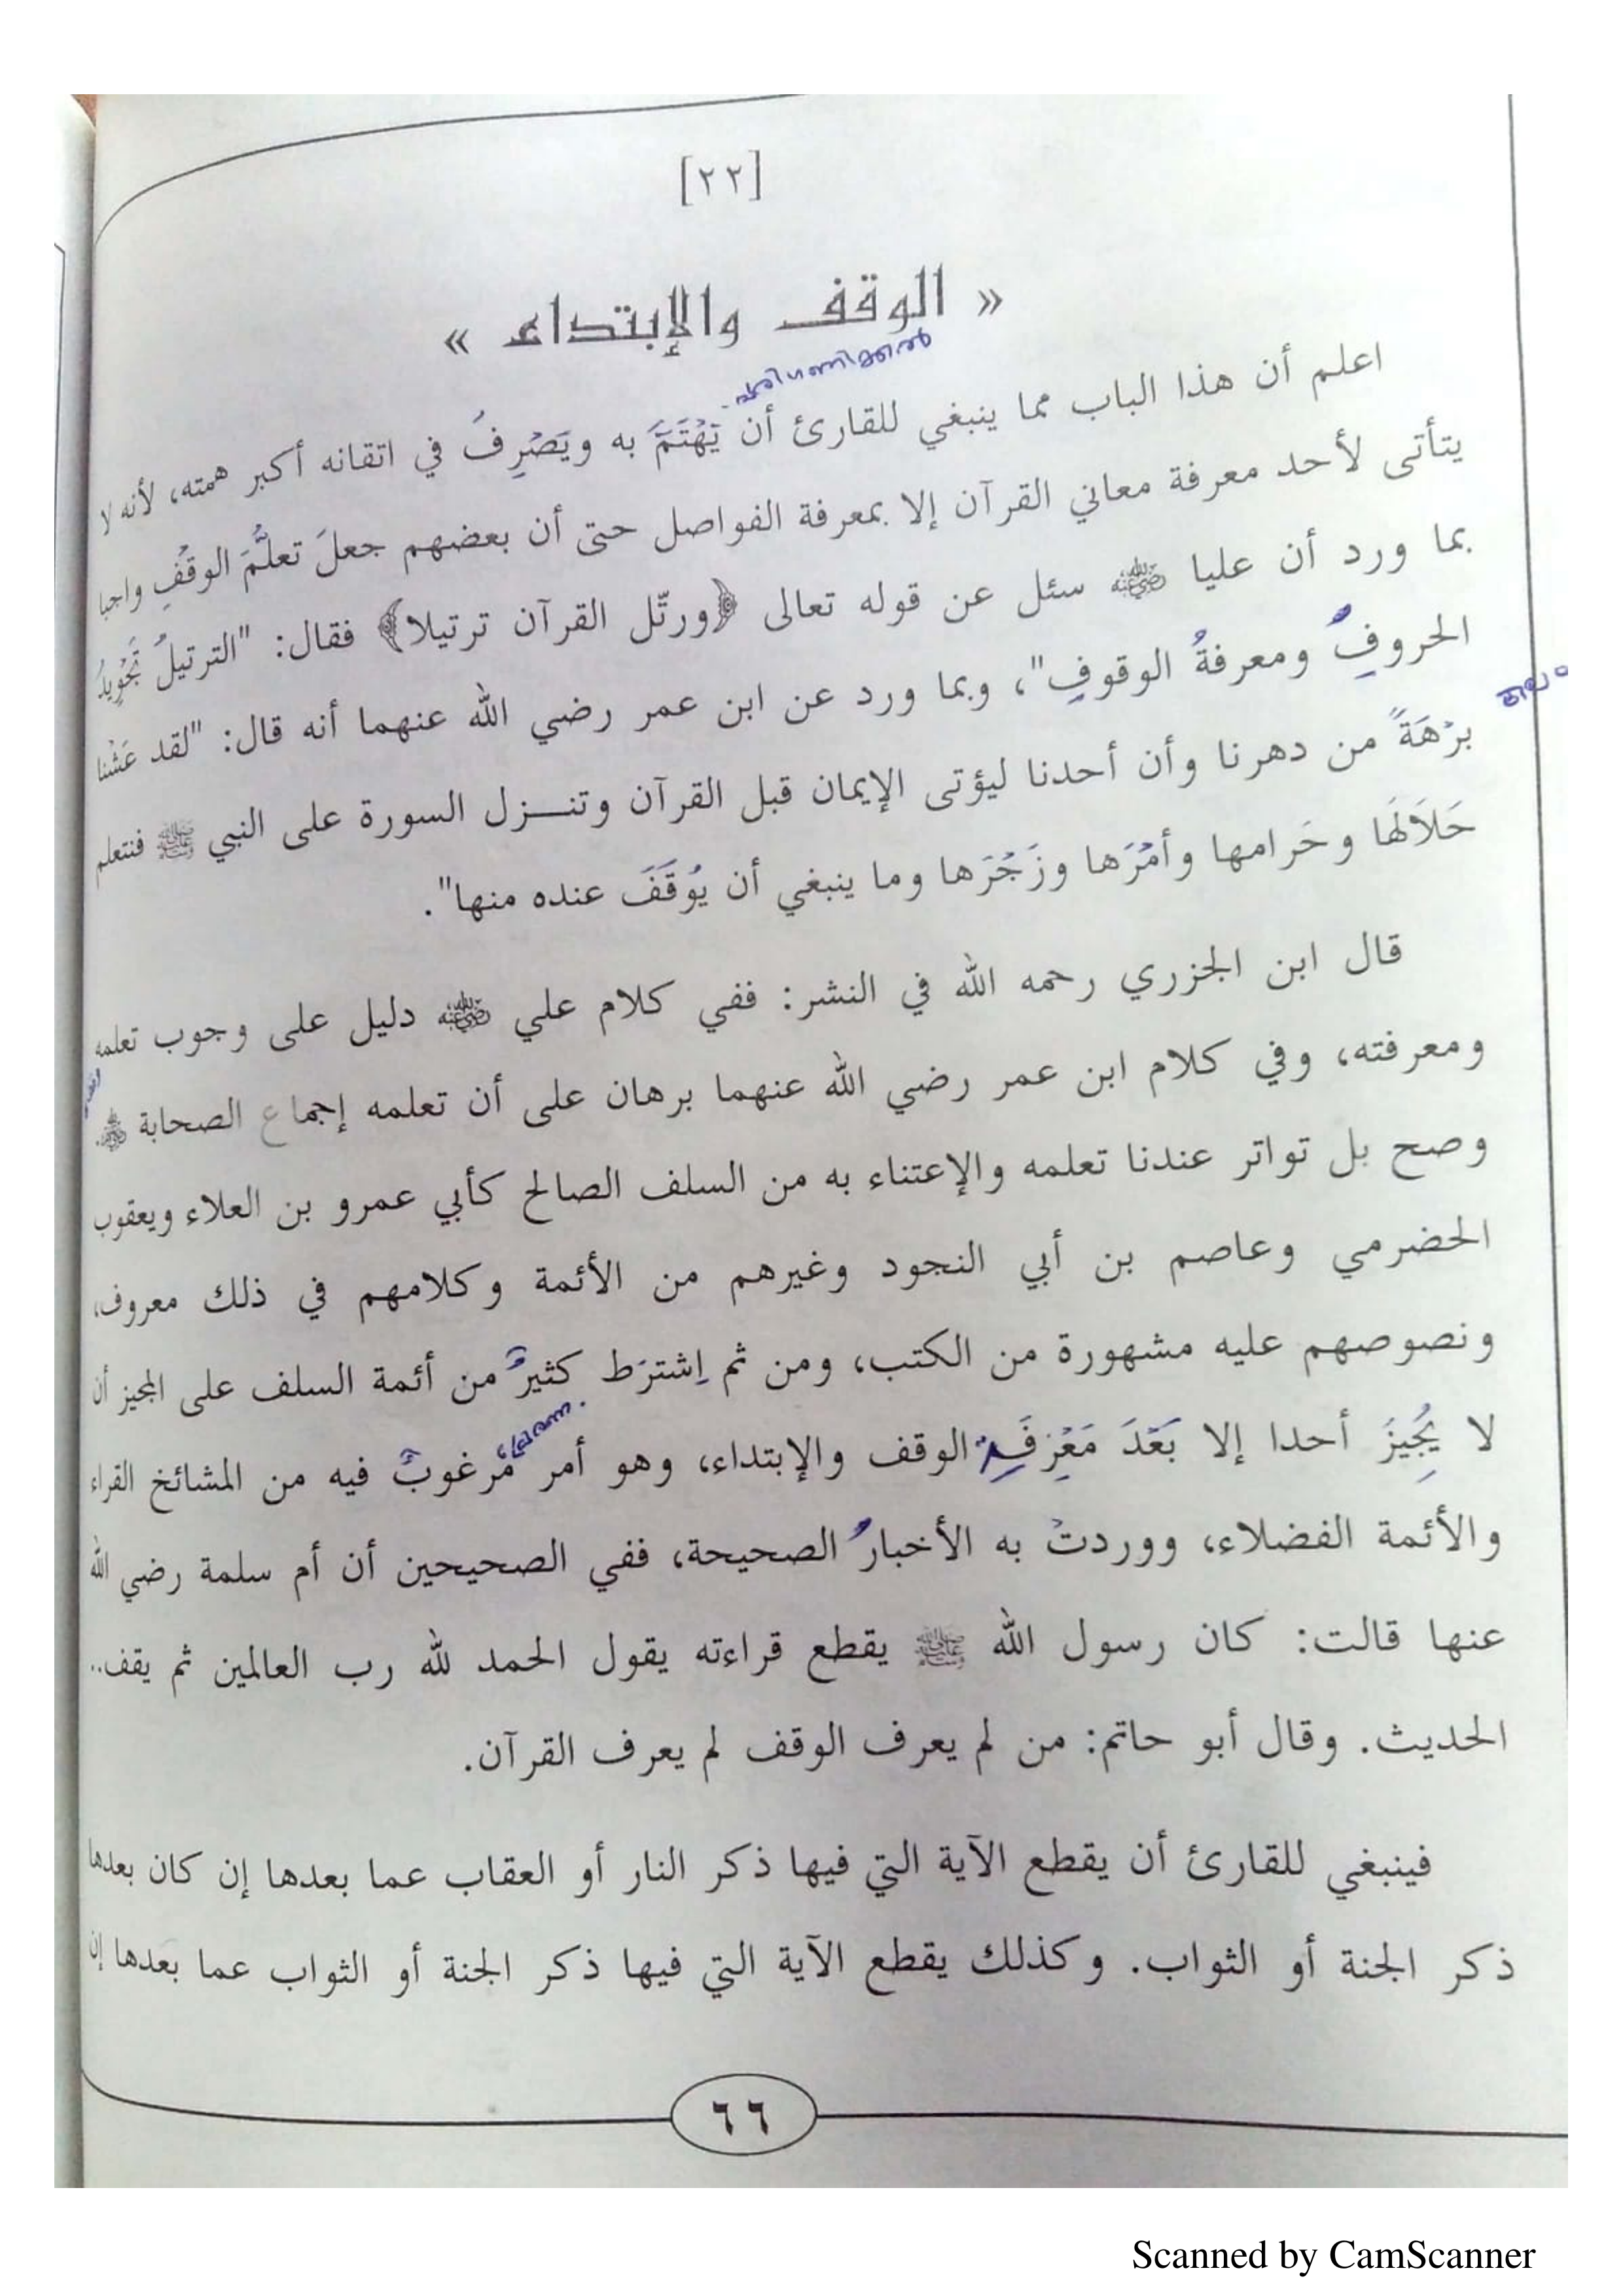 [٢٢]
« الوقف والإبتداء »
പരിഗണിക്കൽ
اعلم أن هذا الباب مما ينبغي للقارئ أن يَهْتَمَّ به ويَصْرِفُ في اتقانه أكبر همته، لأنه لا
يتأتى لأحد معرفة معاني القرآن إلا بمعرفة الفواصل حتى أن بعضهم جعلَ تعلُّمَ الوقْفِ واجبا
بما ورد أن عليا ﵁ سئل عن قوله تعالى ﴿ورتّل القرآن ترتيلا﴾ فقال: "الترتيلُ تَجْوِيدُ
الحروفِ ومعرفةُ الوقوفِ"، وبما ورد عن ابن عمر رضي الله عنهما أنه قال: "لقد عَشْنا
برْهَةً من دهرنا وأن أحدنا ليؤتى الإيمان قبل القرآن وتنـزل السورة على النبي ﷺ فنتعلم
حَلاَلَهَا وحَرامها وأمْرَها وزَجْرَها وما ينبغي أن يُوقَفَ عنده منها".
قال ابن الجزري رحمه الله في النشر: ففي كلام علي ﵁ دليل على وجوب تعلمه
ومعرفته، وفي كلام ابن عمر رضي الله عنهما برهان على أن تعلمه إجماع الصحابة ﵃.
وصح بل تواتر عندنا تعلمه والإعتناء به من السلف الصالح كأبي عمرو بن العلاء ويعقوب
الحضرمي وعاصم بن أبي النجود وغيرهم من الأئمة وكلامهم في ذلك معروف،
ونصوصهم عليه مشهورة من الكتب، ومن ثم اِشترَط كثيرٌ من أئمة السلف على المجيز أن
لا يُجِيزَ أحدا إلا بَعْدَ مَعْرِفَةِ الوقف والإبتداء، وهو أمر مَرغوبٌ فيه من المشائخ القراء
والأئمة الفضلاء، ووردتْ به الأخبارُ الصحيحة، ففي الصحيحين أن أم سلمة رضي الله
عنها قالت: كان رسول الله ﷺ يقطع قراءته يقول الحمد لله رب العالمين ثم يقف..
الحديث. وقال أبو حاتم: من لم يعرف الوقف لم يعرف القرآن.
فينبغي للقارئ أن يقطع الآية التي فيها ذكر النار أو العقاب عما بعدها إن كان بعدها
ذكر الجنة أو الثواب. وكذلك يقطع الآية التي فيها ذكر الجنة أو الثواب عما بعدها إن
٦٦
Scanned by CamScanner